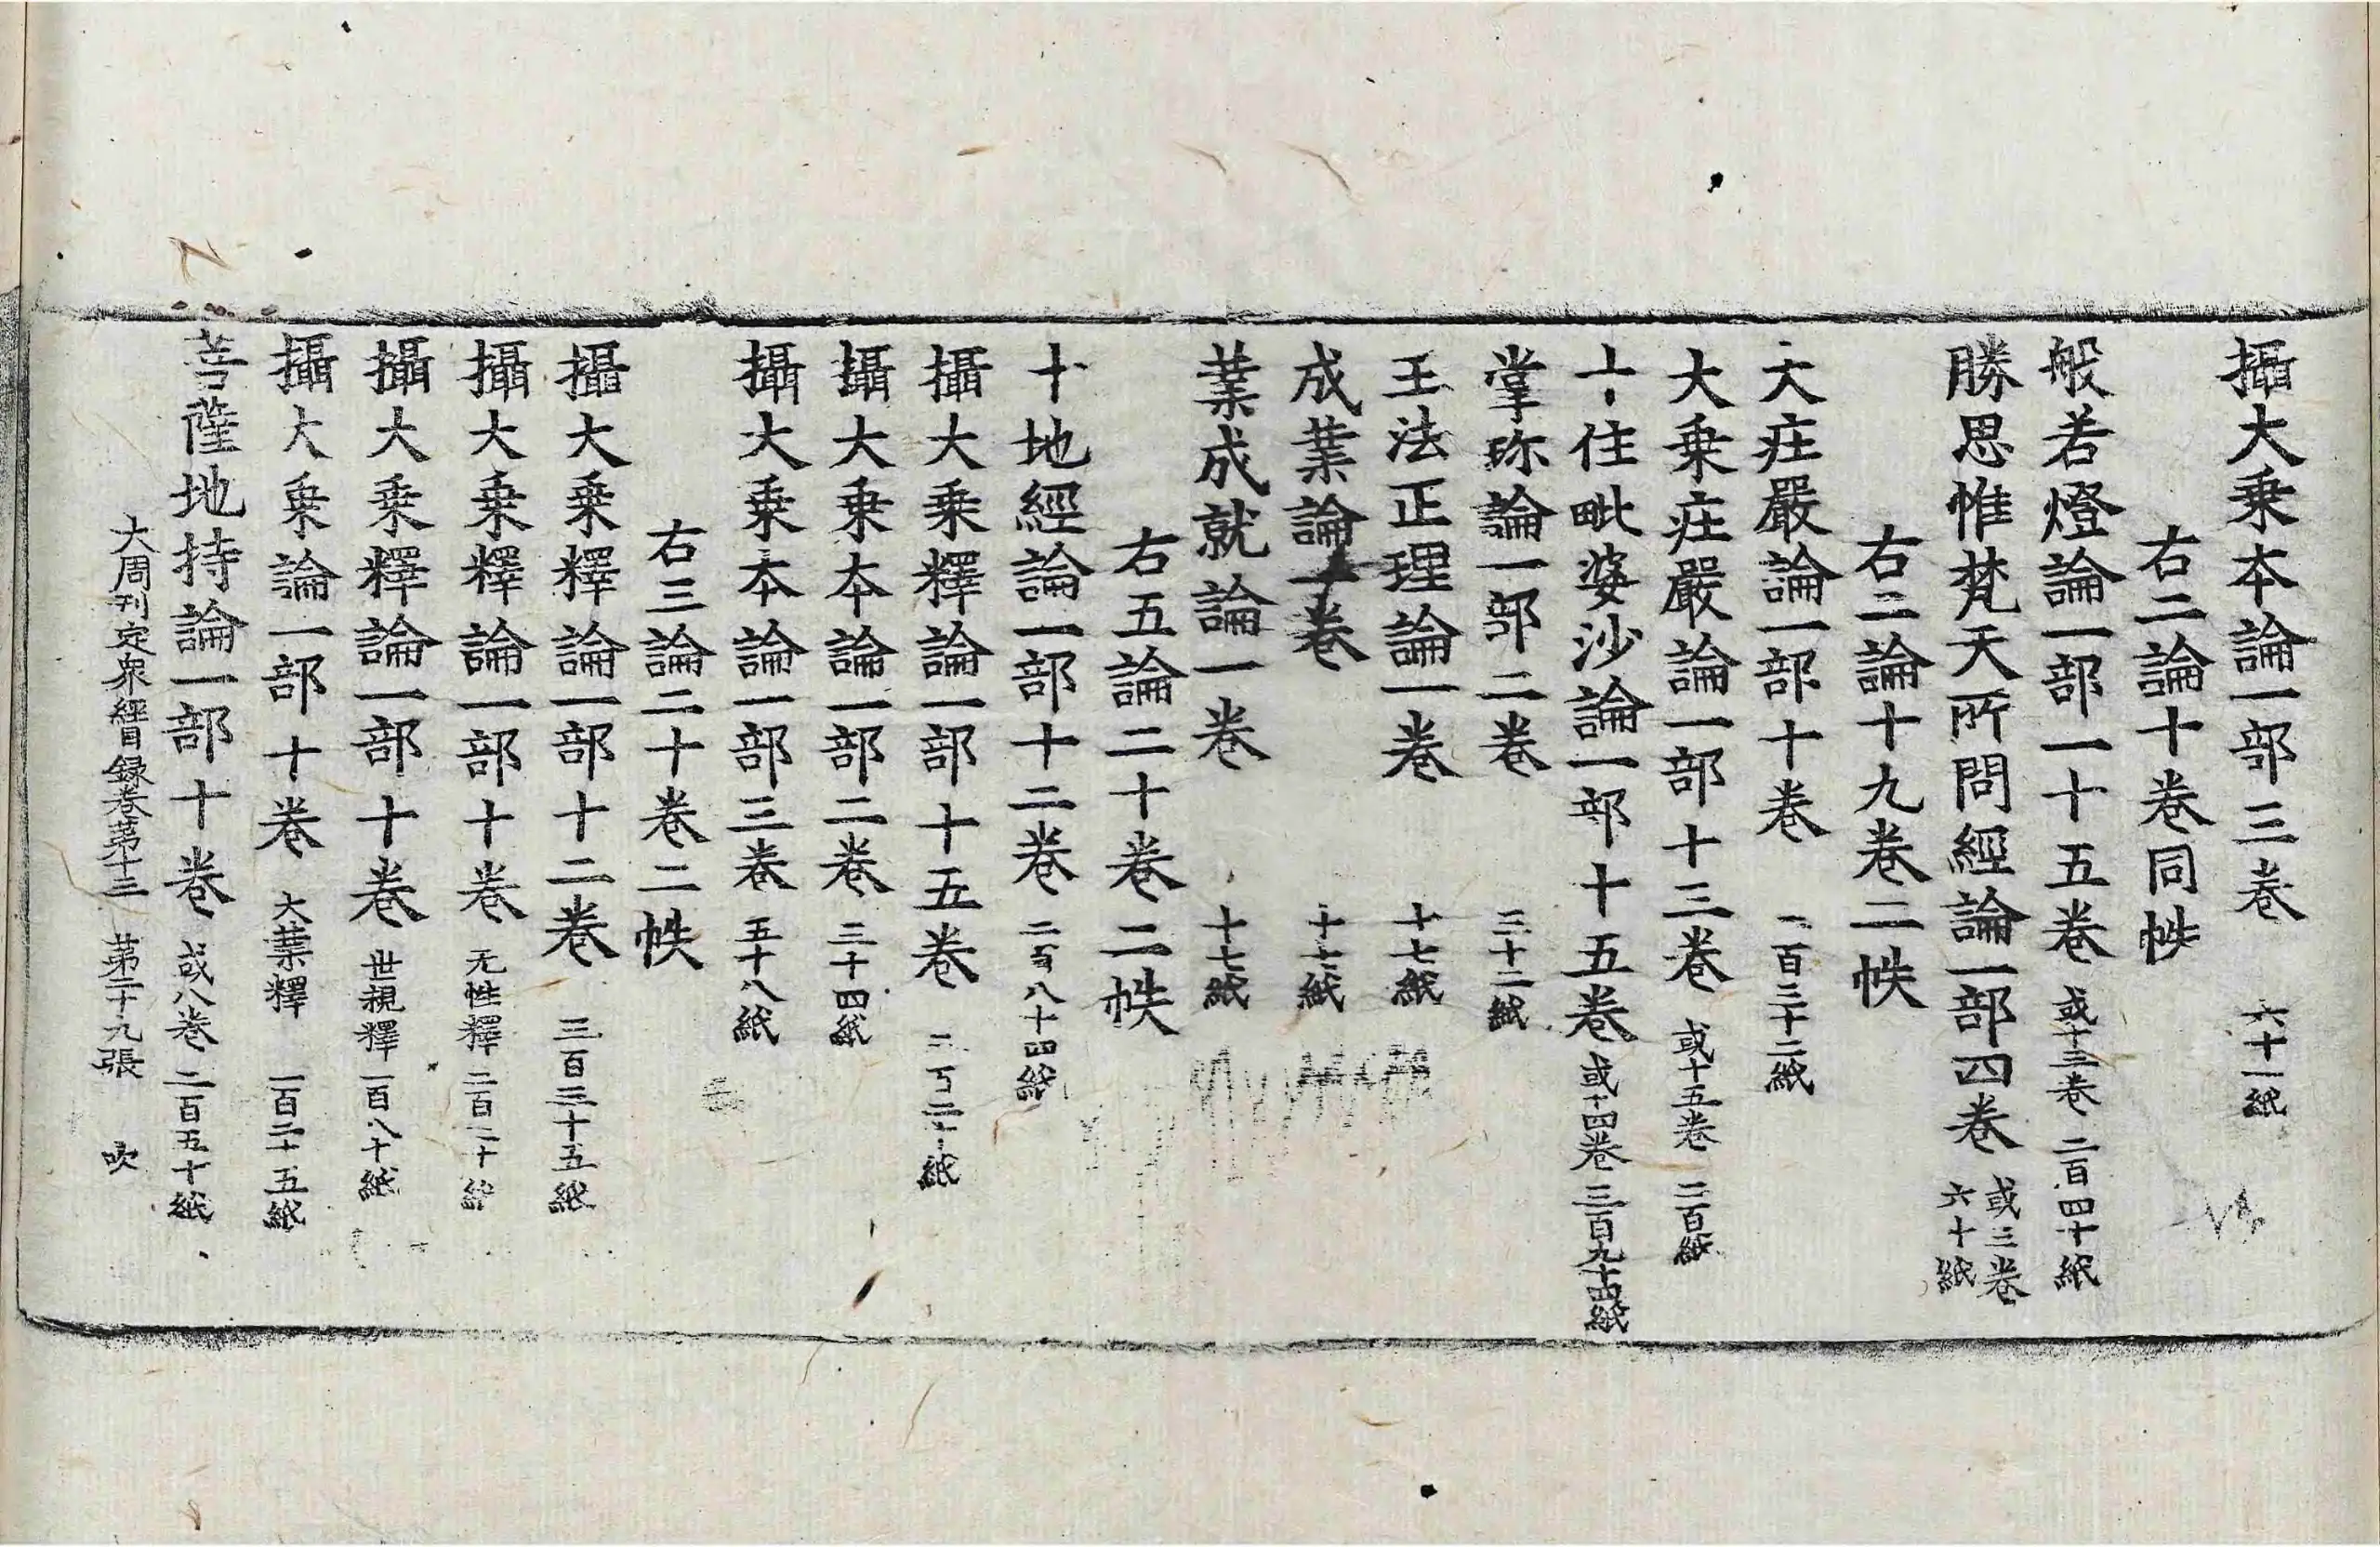 攝大乗本論一部三卷 六十一紙
右二論十卷同帙
般若燈論一部一十五卷 或十三卷 二百四十紙
勝思惟梵天所問經論一部四卷 或三卷 六十紙
右二論十九卷二帙
大庄嚴論一部十卷 一百三十二紙
大乗庄嚴論一部十三卷 或十五卷 二百紙
十住毗婆沙論一部十五卷 或十四卷 三百九十四紙
掌珎論一部二卷 三十二紙
王法正理論一卷 十七紙
成業論一卷 十七紙
業成就論一卷 十七紙
右五論二十卷二帙
十地經論一部十二卷 二百八十四紙
攝大乗釋論一部十五卷 紙
攝大乗本論一部二卷 三十四紙
攝大乗本論一部三卷 五十八紙
右三論二十卷二帙
攝大乗釋論一部十二卷 三百三十五紙
攝大乗釋論一部十卷 无性釋 二百二十紙
攝大乗釋論一部十卷 世親釋 一百八十紙
攝大乗論一部十卷 大業釋 一百二十五紙
菩薩地持論一部十卷 或八卷 二百五十紙
大周刊定衆經目録卷第十三 第二十九張 吹